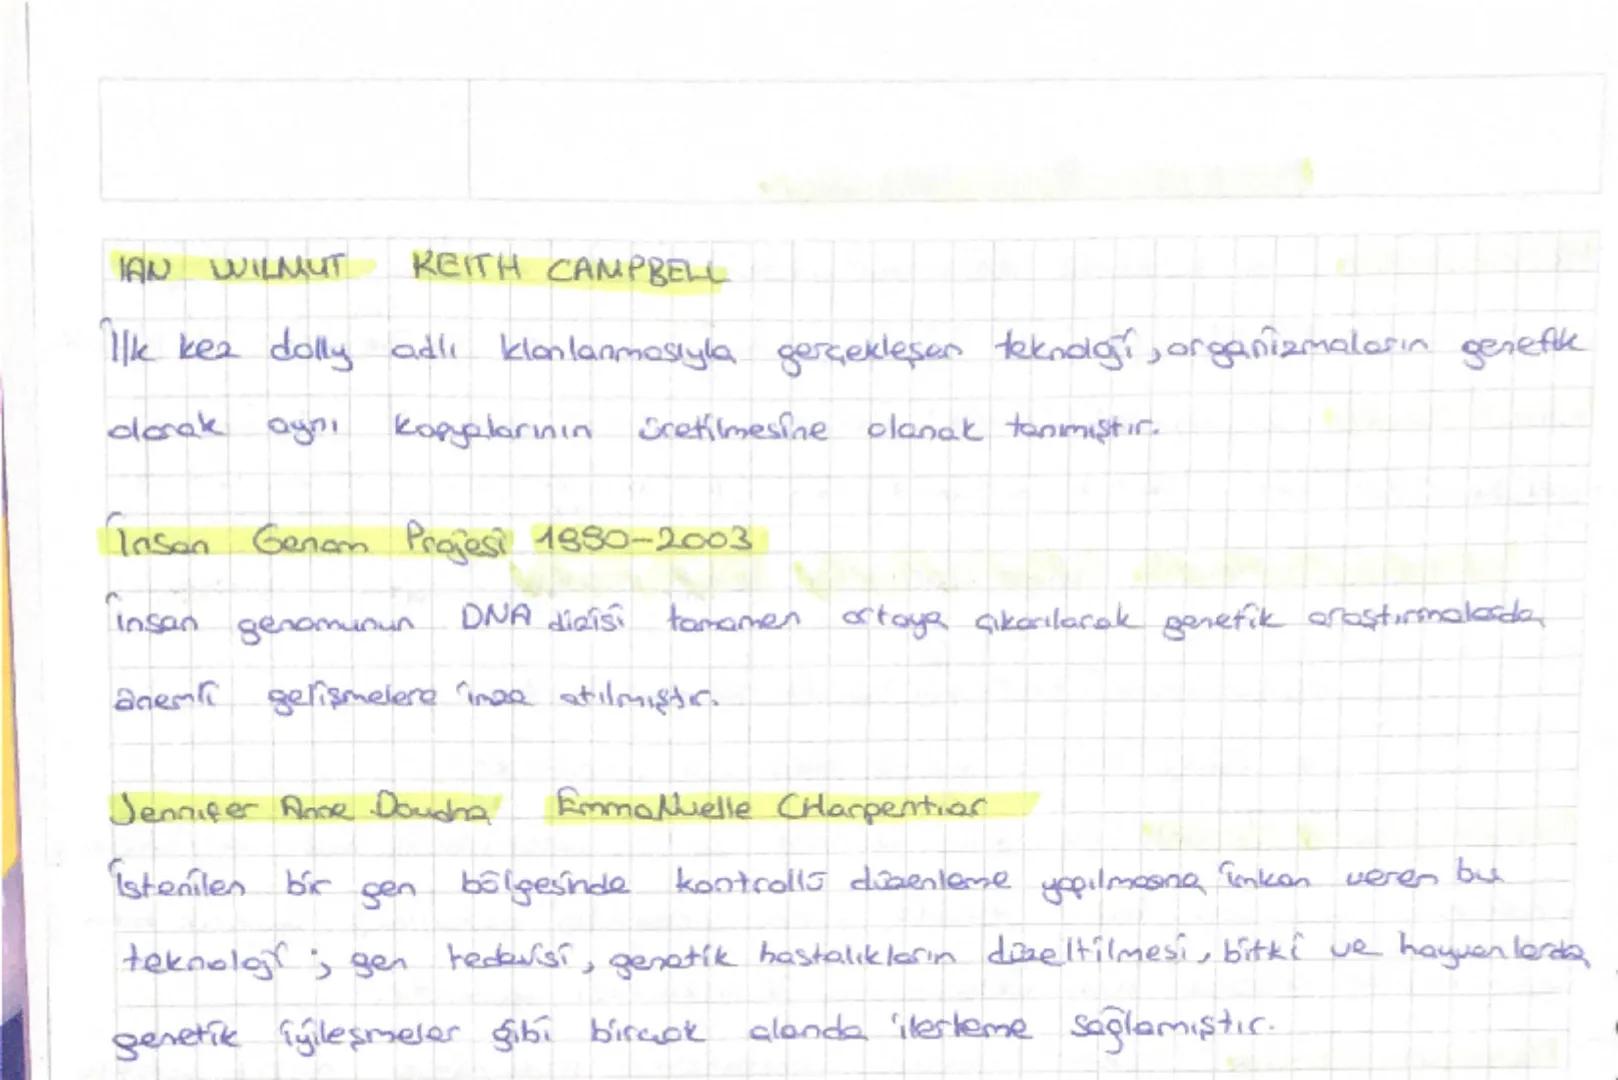 IAN WILMUT KEITH CAMPBELL
İlk kez dolly adlı klonlanmasıyla gerçekleşen teknoloji, organizmaların genetik
olarak aynı kopyalarının üretilmesine olanak tanımıştır.
İnsan Genom Projesi 1990-2003
insan genomunun DNA dizisi tamamen ortaya çıkarılarak genetik araştırmalarda
önemli gelişmelere imza atılmıştır.
Jennifer Anne Doudna EmmaNuelle CHarpentiar
istenilen bir gen bölgesinde kontrollü düzenleme yapılmasına imkan veren bu
teknoloji ; gen tedavisi, genetik hastalıkların düzeltilmesi, bitki ve hayvanlarda
genetik iyileşmeler gibi birçok alanda ilerleme sağlamıştır.